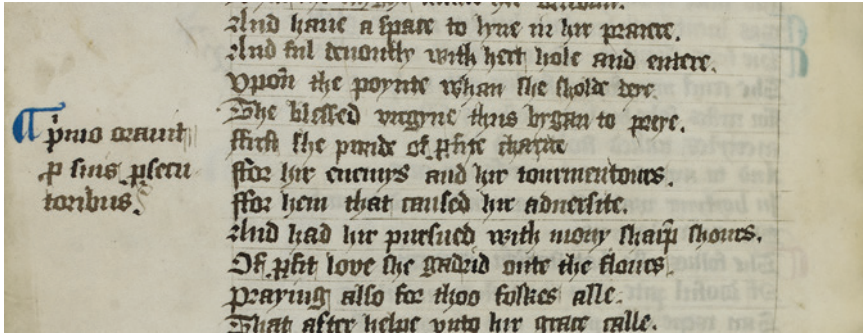 And haue a space to lyue in hir praiere.
And ful deuoutly with hert hole and entere.
Vpon the poynte whan she sholde deye
The blessed virgyne thus bygan to preye.
ffirst she praide of ꝑfite charite
ffor hir enemys and hir tourmentoures.
ffor hem that caused hir aduersite.
And had hir pursued with mony sharp shoures.
Of ꝑfit love she gadrid oute the floures.
Praying also for thoo folkes alle.
That after helpe vnto hir grace calle.
p̄mo orauit
ꝑ suis ꝑsecu
toribus.